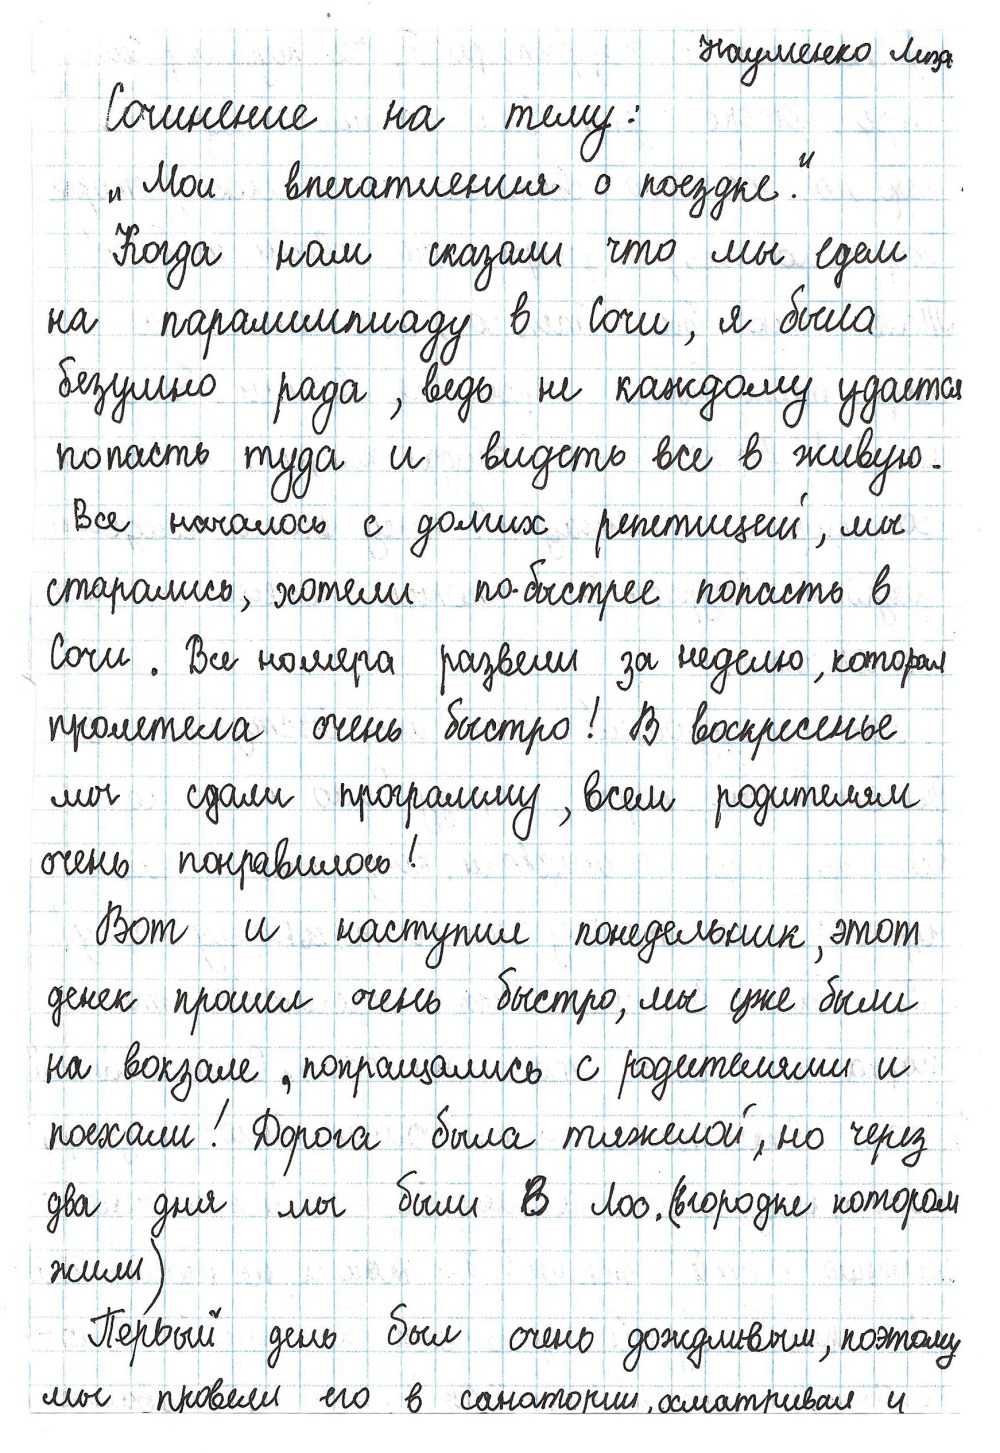 Науменко Лиза
Сочинение на тему:
„Мои впечатления о поездке."
Когда нам сказали что мы едем
на паралимпиаду в Сочи, я была
безумно рада, ведь не каждому удается
попасть туда и видеть все в живую.
Все началось с долгих репетиций, мы
старались, хотели по-быстрее попасть в
Сочи. Все номера развели за неделю, которая
пролетела очень быстро! В воскресенье
мы сдали программу, всем родителям
очень понравилось!
Вот и наступил понедельник, этот
денек прошел очень быстро, мы уже были
на вокзале, попращались с родителями и
поехали! Дорога была тяжелой, но через
два дня мы были в Лоо. (вгородке котором
жили)
Первый день был очень дождливым, поэтому
мы провели его в санатории, осматривая и